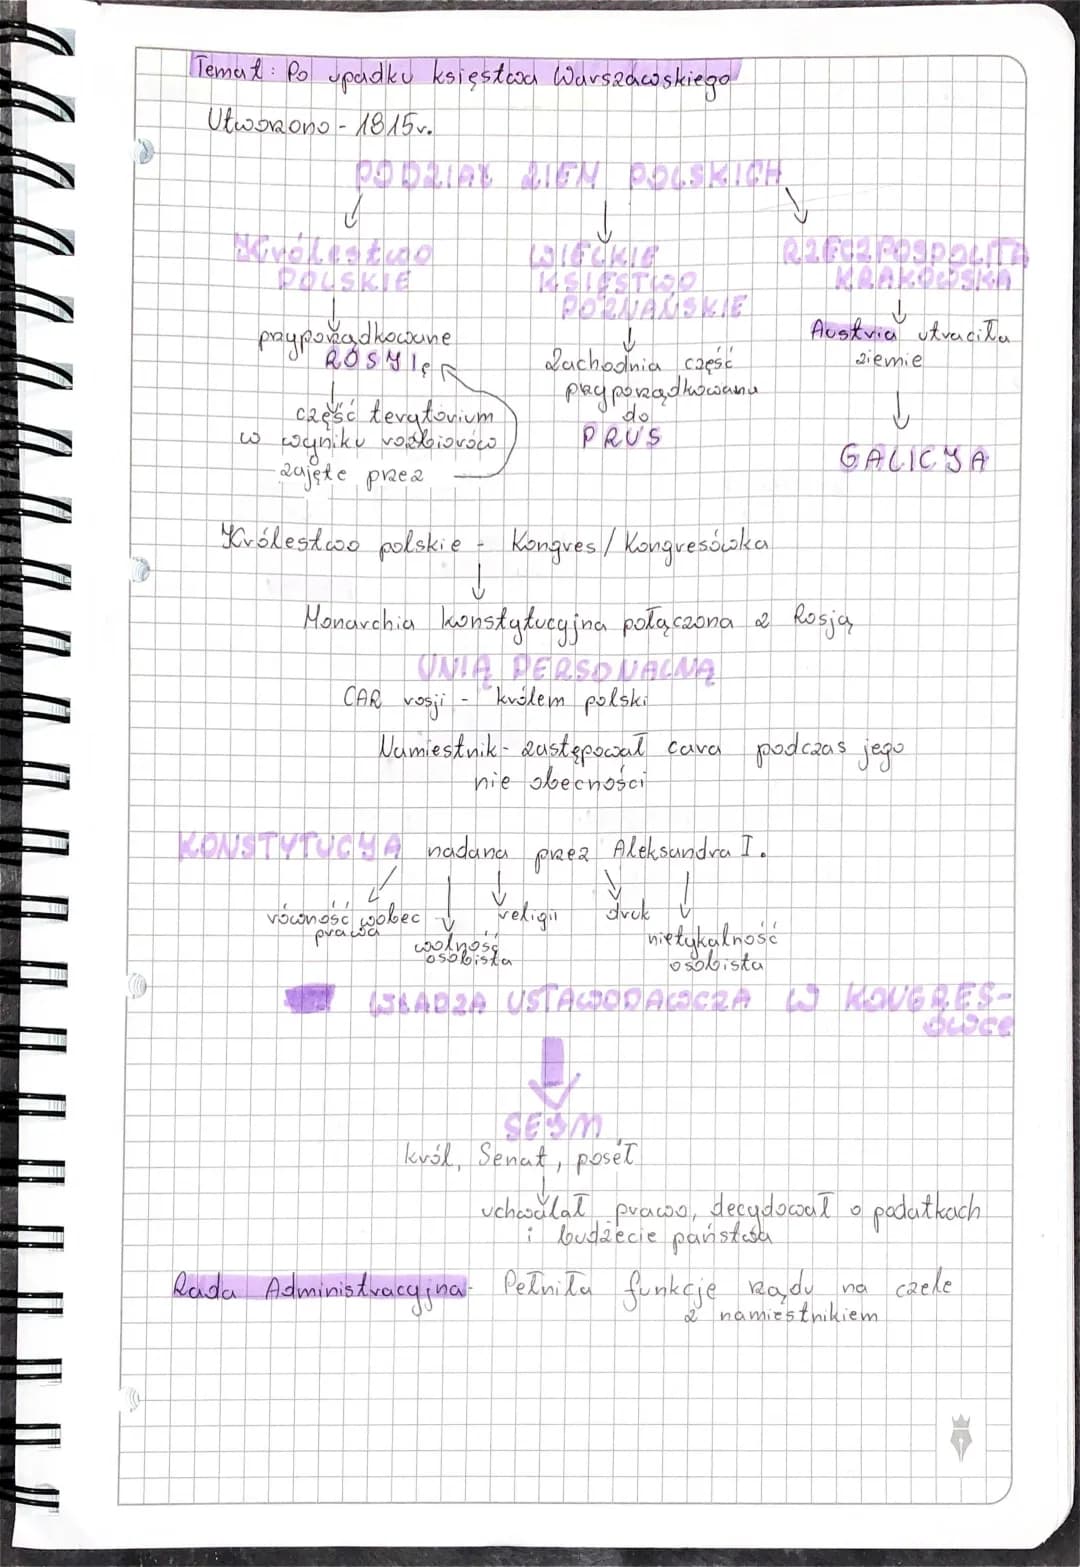 Temat: Po upadku księstwa Warszawskiego
Utworzono - 1815r.
PODZIAŁ ZIEM POLSKICH
Królestwo
POLSKIE
przyporządkowane
ROSYJę
część terytorium
w wyniku rozbiorów
zajęte przez
WIELKIE
KSIĘSTWO
POZNAŃSKIE
Zachodnia część
przyporządkowana
do
PRUS
RZECZPOSPOLITA
KRAKOWSKA
Austria utraciła
ziemie
GALICJA
Królestwo polskie - Kongres/Kongresówka
Monarchia konstytucyjna połączona z Rosją
UNIĄ PERSONALNĄ
CAR rosji - królem polski
Namiestnik - zastępował cara podczas jego
nie obecności
KONSTYTUCJA nadana przez Aleksandra I.
równość wobec
prawa
wolność
osobista
religii
druk
nietykalność
osobista
WŁADZA USTAWODAWCZA W KONGRES-
ÓWCE
SEJM
król, Senat, poseł
uchwalał prawo, decydował o podatkach
i budżecie państwa
Rada Administracyjna - Pełniła funkcję rządu na czele
z namiestnikiem